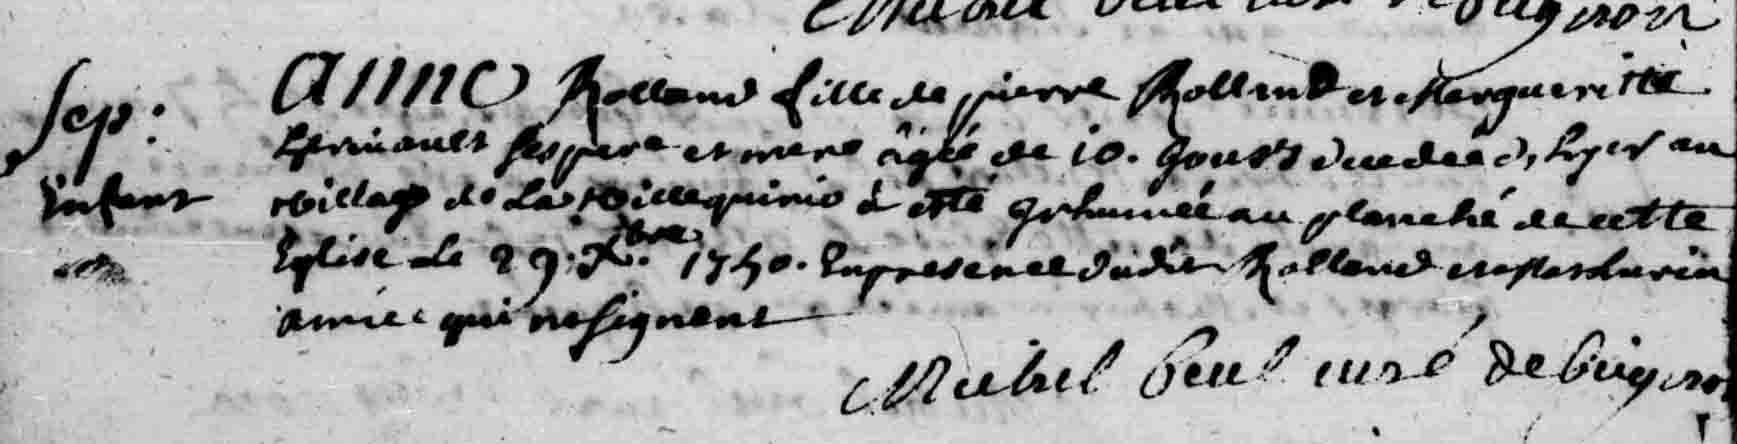 Sep:
Enfant
Anne Rolland fille de pierre Rolland et Margueritte
ses pere et mere âgée de 10. jours decedée hyer au
village de La Villequinio à esté inhumée au planché de cette
Eglise Le 29. Xbre 1750. En presence dudit Rolland et Mathurin
qui ne signent
Michel curé de